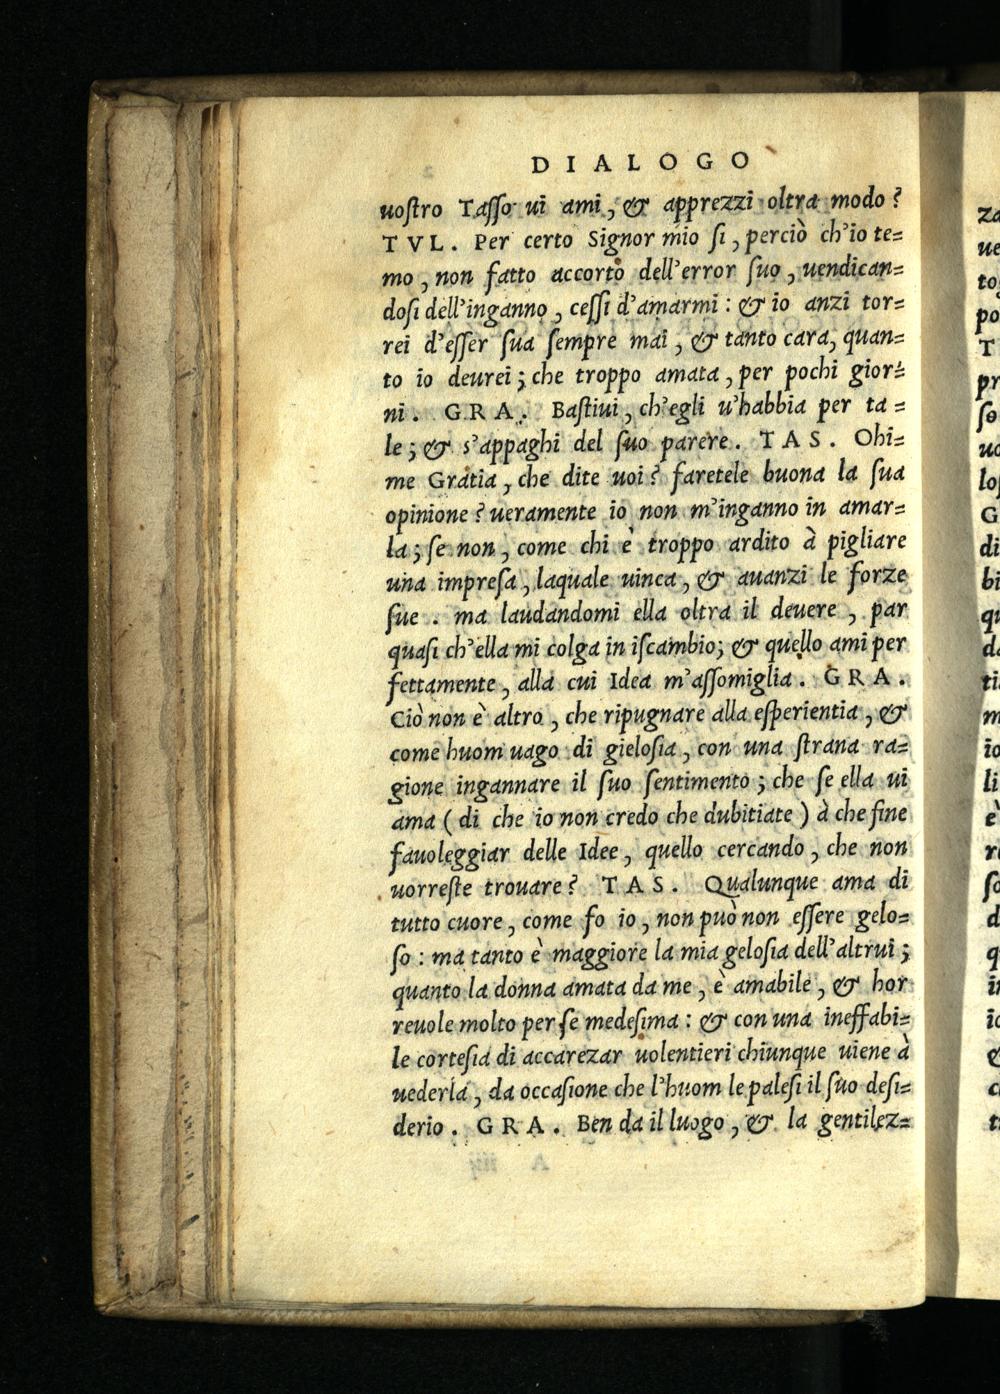 DIALOGO
uoſtro Taſſo ui ami, & apprezzi oltra modo?
TVL. Per certo Signor mio ſi, perciò ch'io te=
mo, non fatto accorto dell'error ſuo, uendican=
doſi dell'inganno, ceſſi d'amarmi: & io anzi tor=
rei d'eſſer ſua ſempre mai, & tanto cara, quan=
to io deurei; che troppo amata, per pochi gior=
ni. GRA. Baſtiui, ch'egli u'habbia per ta=
le; & s'appaghi del ſuo parere. TAS. Ohi=
me Gratia, che dite uoi? faretele buona la ſua
opinione? ueramente io non m'inganno in amar=
la; ſe non, come chi è troppo ardito à pigliare
una impreſa, laquale uinca, & auanzi le forze
ſue. ma laudandomi ella oltra il deuere, par
quaſi ch'ella mi colga in iſcambio; & quello ami per
fettamente, alla cui Idea m'aſſomiglia. GRA.
Ciò non è altro, che ripugnare alla eſperientia, &
come huom uago di gieloſia, con una ſtrana ra=
gione ingannare il ſuo ſentimento; che ſe ella ui
ama (di che io non credo che dubitiate) à che fine
fauoleggiar delle Idee, quello cercando, che non
uorreſte trouare? TAS. Qualunque ama di
tutto cuore, come fo io, non può non eſſere gelo=
ſo: ma tanto è maggiore la mia geloſia dell'altrui;
quanto la donna amata da me, è amabile, & hor
reuole molto per ſe medeſima: & con una ineffabi=
le corteſia di accarezar uolentieri chiunque uiene à
uederla, da occaſione che l'huom le paleſi il ſuo deſi=
derio. GRA. Ben da il luogo, & la gentilez=